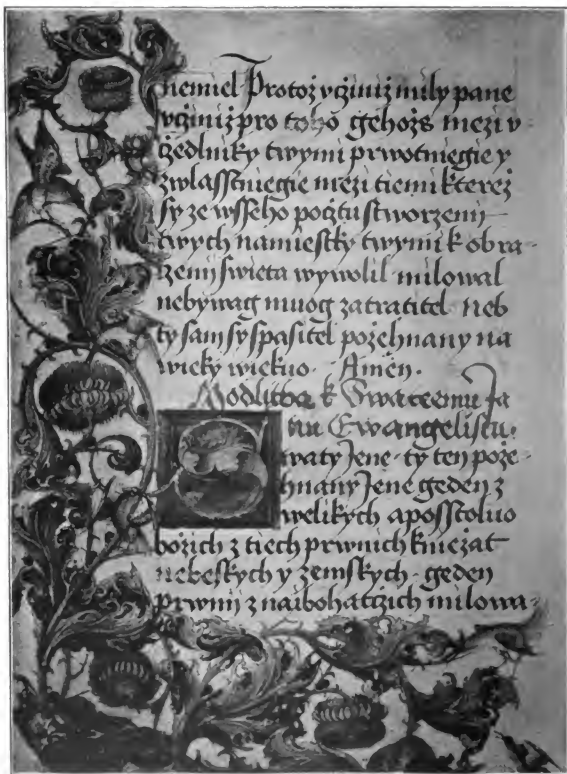 nemiel · Protož vcziniž mily pane
vcziniž pro toho gehožs mezi v-
czedlniky twymi prwotniegie y
zwlasstniegie mezi tiemi kterež
sy ze wsseho pocztu stworzenij
twych namiestky twymi k obra-
zenij swieta wywolil milowal
nebywag muog zatratitel neb
ty sam sy spasitel požehnany na
wieky wiekuo · Amen ·
Modlitba k Swateemu Ja
nu Ewangelistu ·
Swaty Jene · ty ten pože-
hnany Jene geden z
welikych aposstoluo
božich z tiech prwnich kniežat
nebeskych y zemskych · geden
prwnij z naibohatczich milowa-